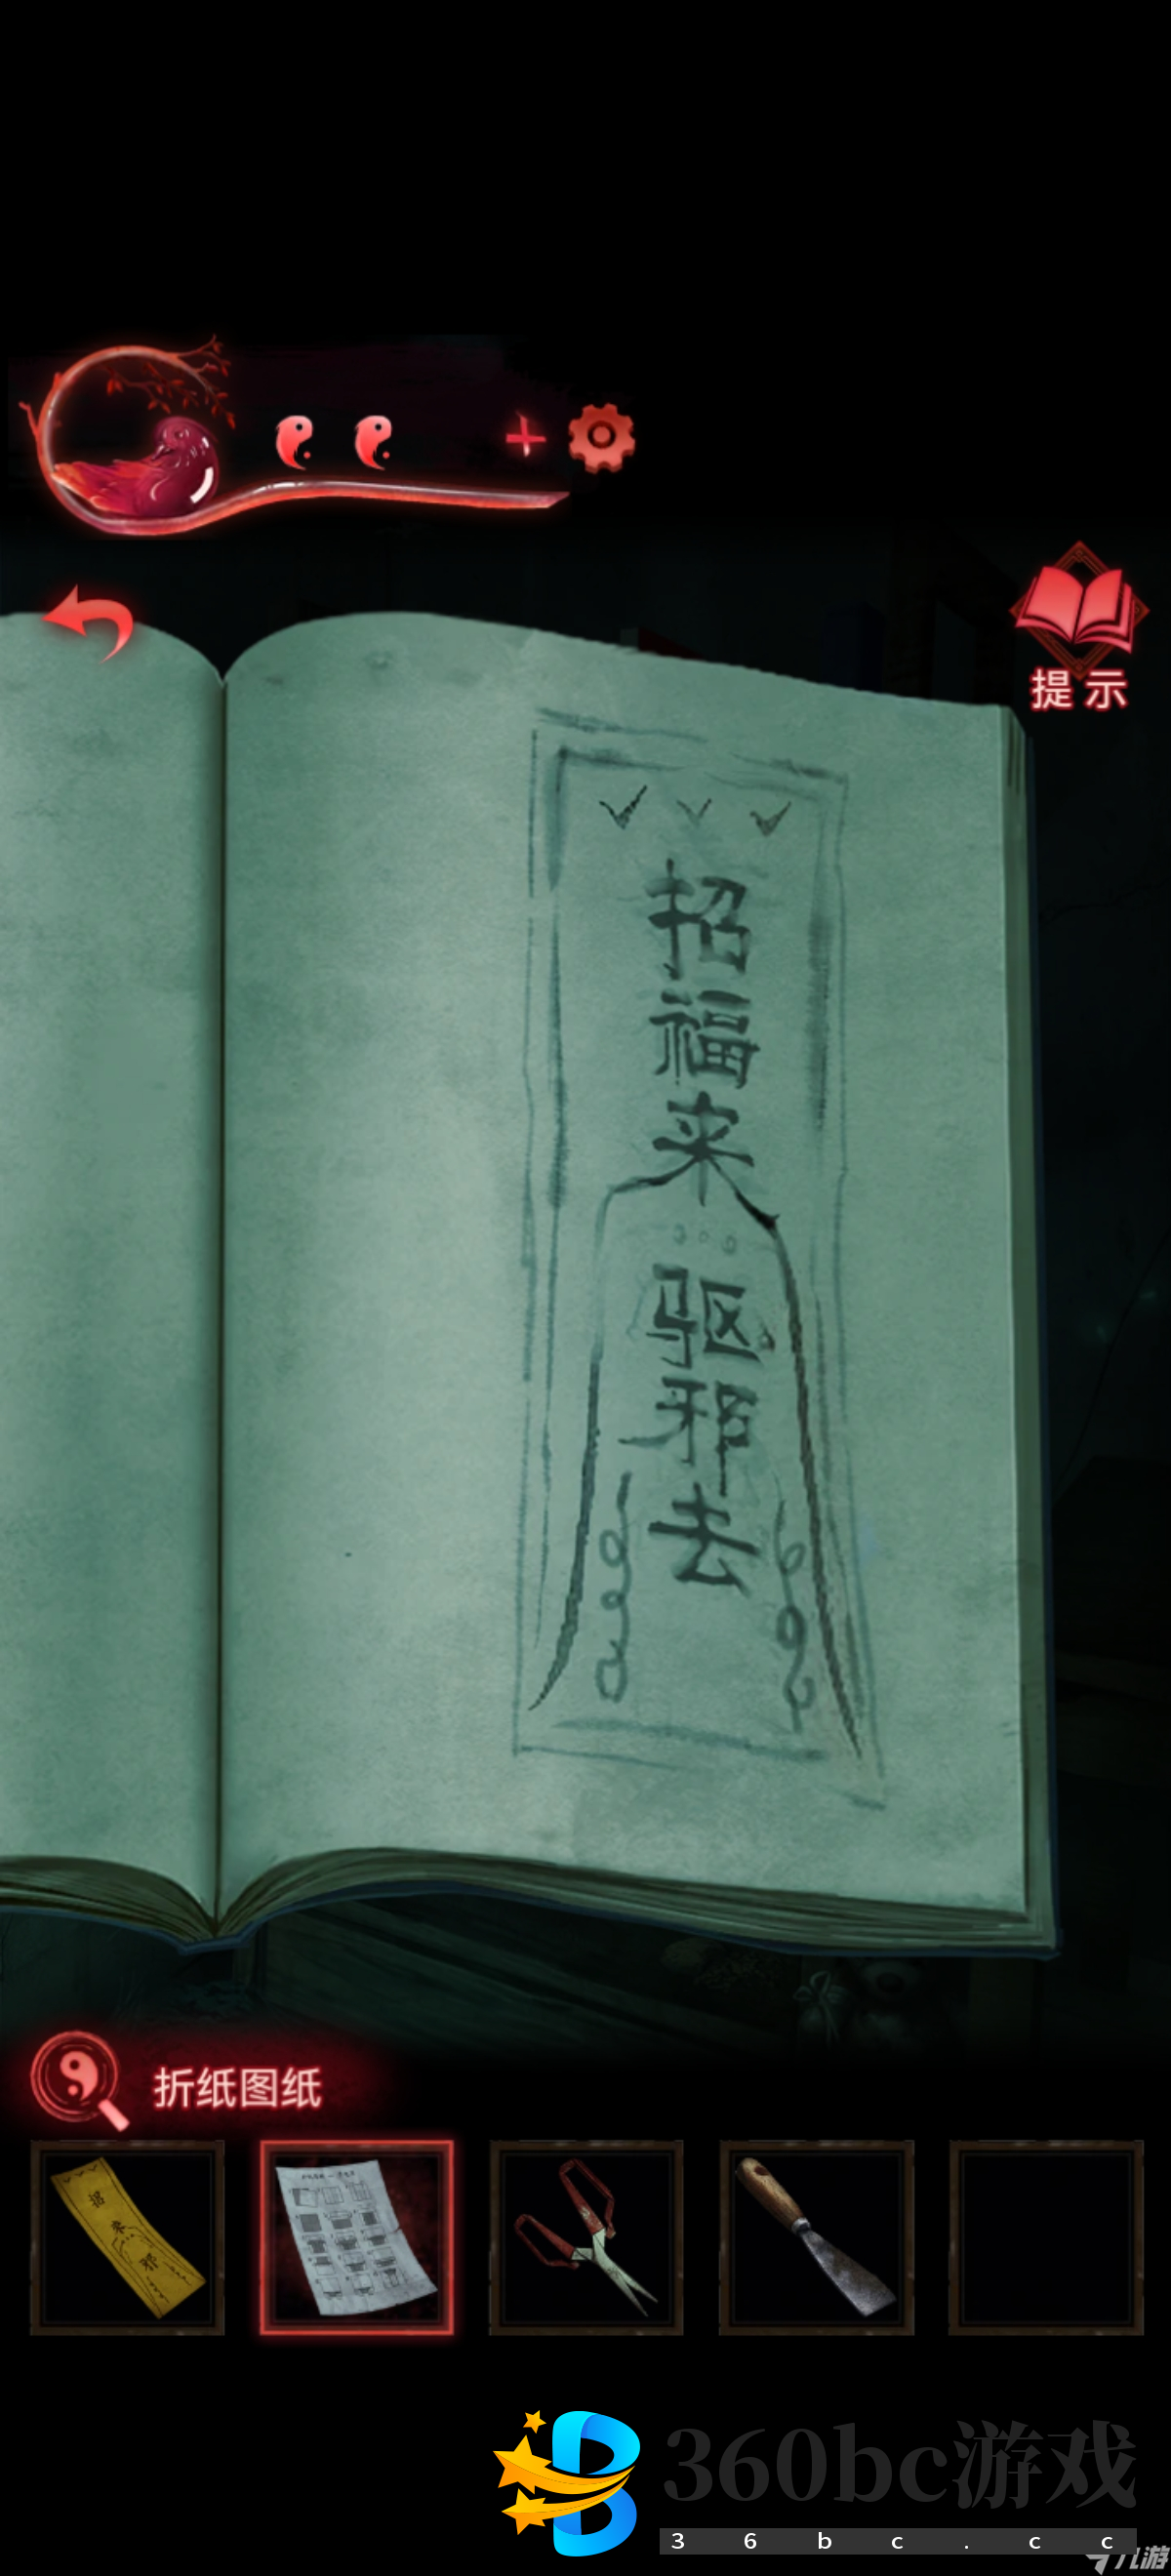 提示
招福来
驱邪去
折纸图纸
招
来
邪
360bc游戏
36bc.cc
九游